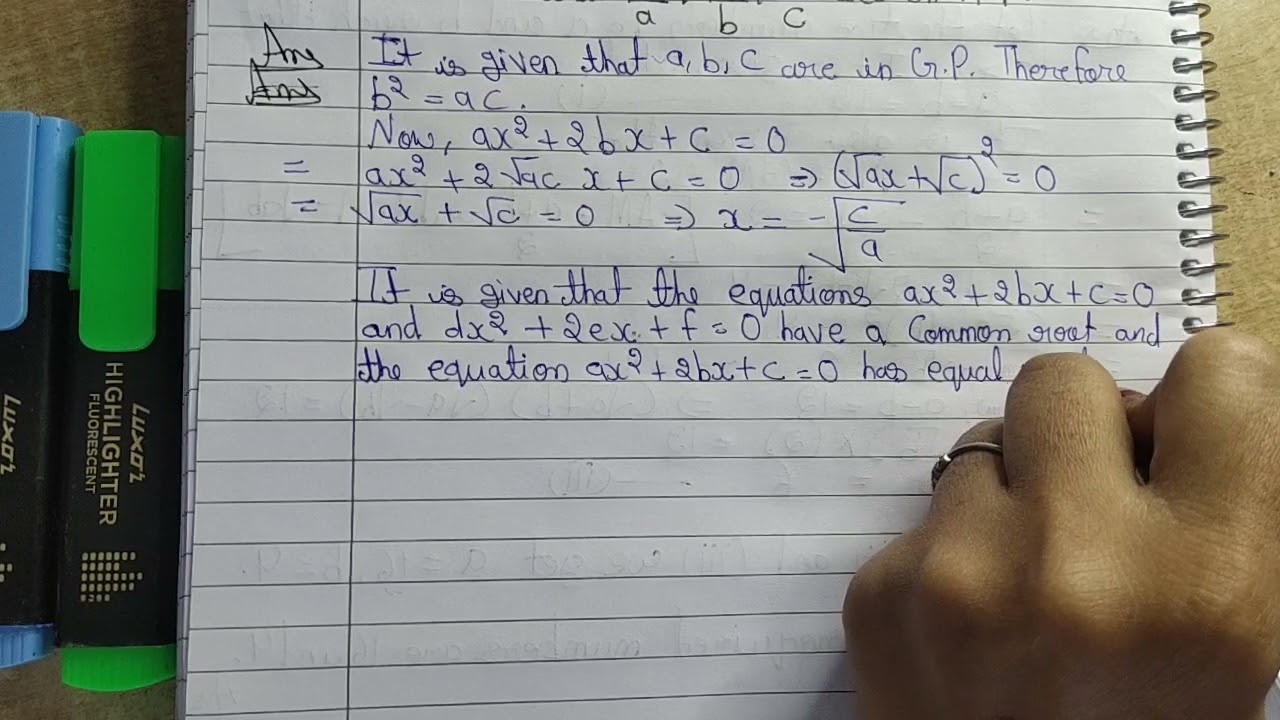 a b c
Ans It is given that a, b, c are in G.P. Therefore
Ans b² = ac.
Now, ax² + 2bx + c = 0
= ax² + 2√ac x + c = 0 ⇒ (√ax + √c)² = 0
= √ax + √c = 0 ⇒ x = -√c/a
It is given that the equations ax² + 2bx + c = 0
and dx² + 2ex + f = 0 have a Common root and
the equation ax² + 2bx + c = 0 has equal
Luxor
HIGHLIGHTER
FLUORESCENT
Luxor